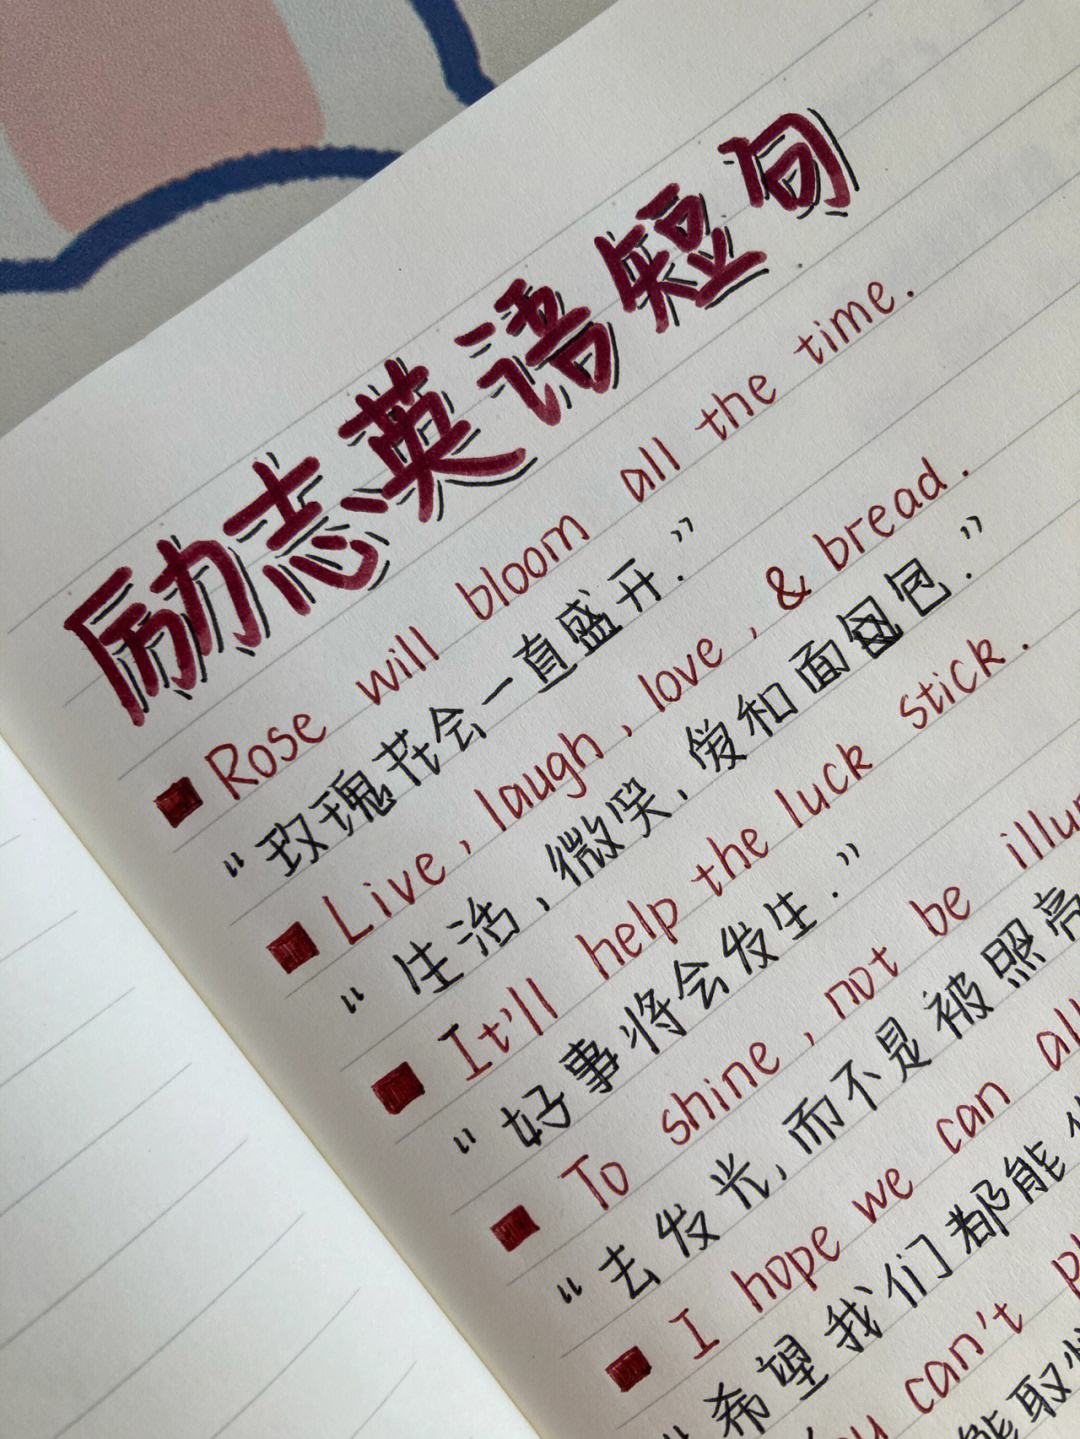 励志英语短句
Rose will bloom all the time.
“玫瑰花会一直盛开.”
Live, laugh, love, & bread.
“生活,微笑,爱和面包包.”
It'll help the luck stick.
“好事将会发生.”
To shine, not be
“去发光,而不是被照亮
I hope we can all
“希望我们都能
can't
能取